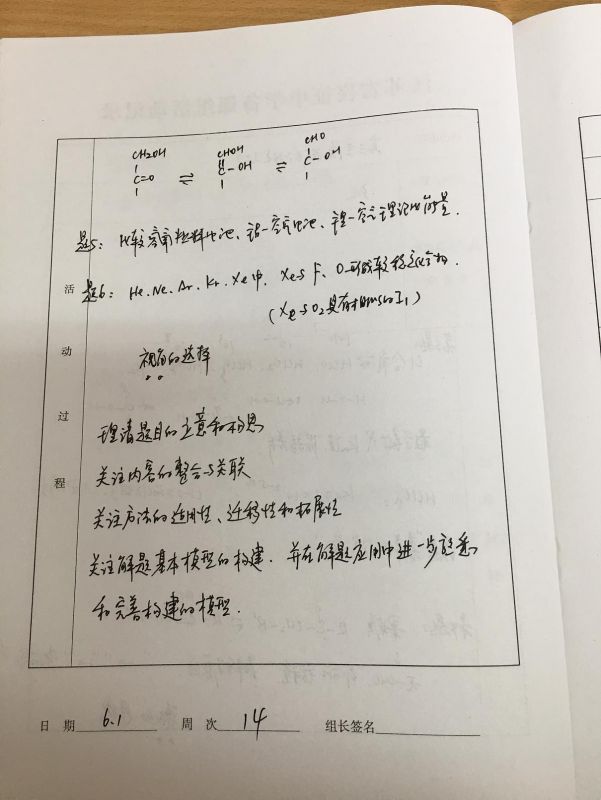 CH2OH CHOH CHO
C=O ⇌ C-OH ⇌ C-OH
题5: 比较高角燃料电池、铝-空气电池、锂-空气理论比能量.
题6: He、Ne、Ar、Kr、Xe中, Xe与F、O可形成较稳定化合物.
(Xe与O2具有相近的I1)
视角的选择
理清题目的立意和构思
关注内容的整合与关联
关注方法的适用性、迁移性和拓展性
关注解题基本模型的构建. 并在解题应用中进一步熟悉
和完善构建的模型.
活动过程
日期 6.1 周次 14 组长签名